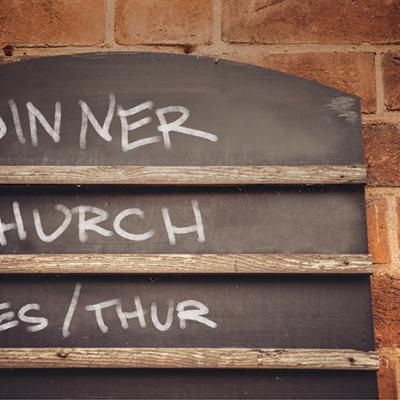 DINNER
HURCH
ES/THUR